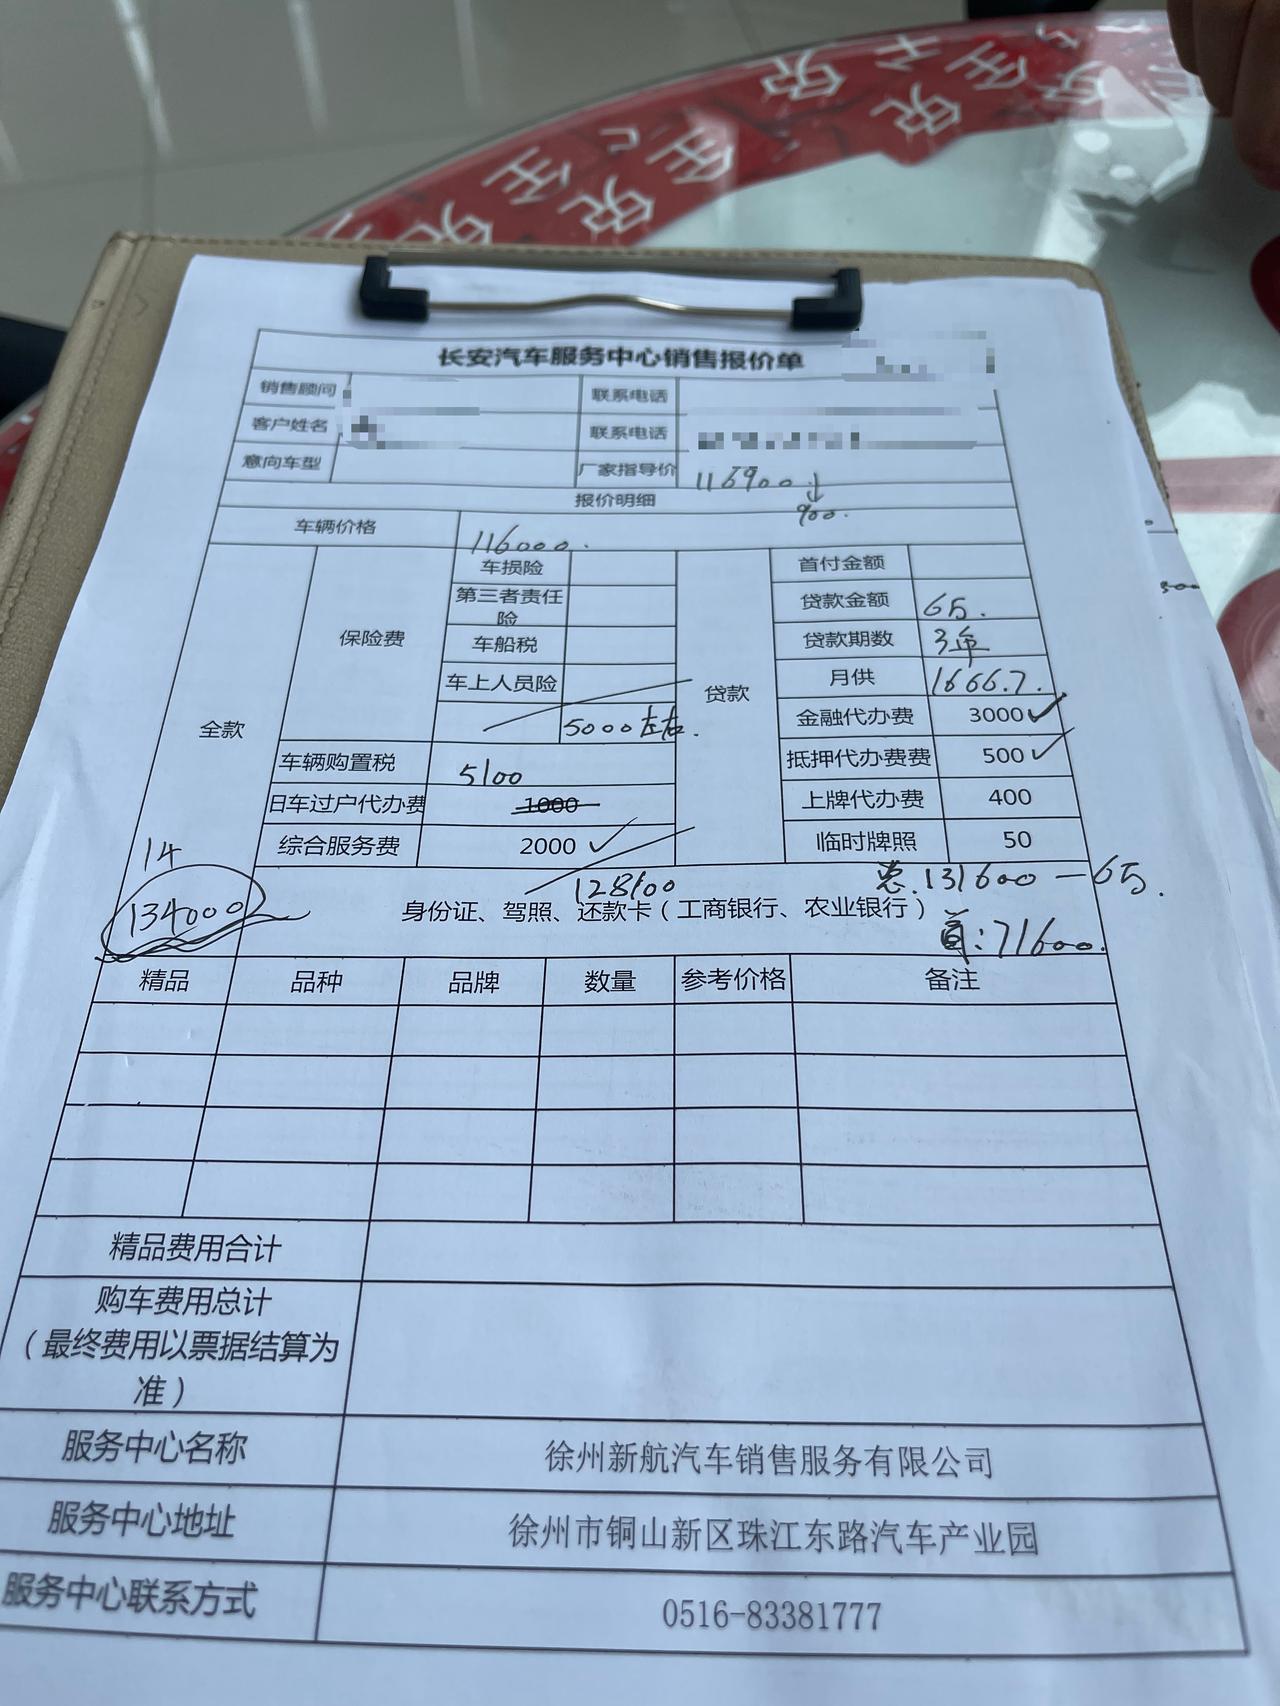 长安汽车服务中心销售报价单
销售顾问 联系电话
客户姓名 联系电话
意向车型 厂家指导价 116900
报价明细 900.
车辆价格 116000.
全款 保险费 车损险 贷款 首付金额
第三者责任险 贷款金额 6万.
车船税 贷款期数 3年
车上人员险 月供 1666.7.
5000左右. 金融代办费 3000✓
车辆购置税 5100 抵押代办费费 500✓
旧车过户代办费 1000 上牌代办费 400
综合服务费 2000 ✓ 临时牌照 50
14
134000
128100
总.131600-6万.
身份证、驾照、还款卡（工商银行、农业银行）
首:71600.
精品 品种 品牌 数量 参考价格 备注
精品费用合计
购车费用总计
（最终费用以票据结算为
准）
服务中心名称 徐州新航汽车销售服务有限公司
服务中心地址 徐州市铜山新区珠江东路汽车产业园
服务中心联系方式 0516-83381777